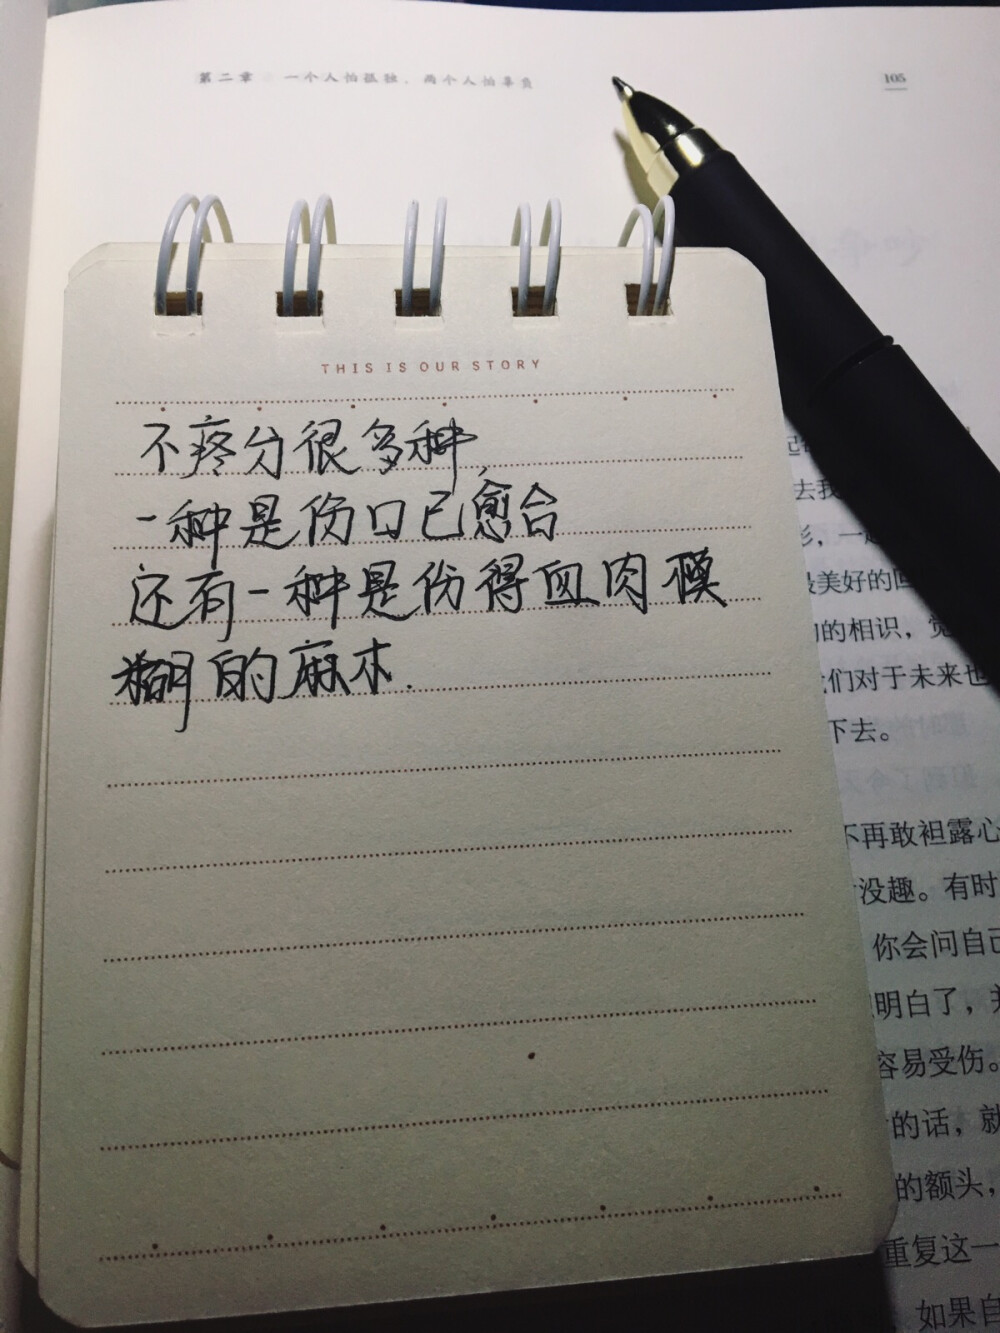 第二章 一个人怕孤独，两个人怕辜负
105
THIS IS OUR STORY
不疼分很多种，
一种是伤口已愈合
还有一种是伤得血肉模
糊的麻木.
去我
彡，一起
最美好的回
的相识，觉
们对于未来也
下去。
不再敢袒露心
没趣。有时
你会问自己
明白了，并
容易受伤。
的话，就
的额头，
重复这一
如果自